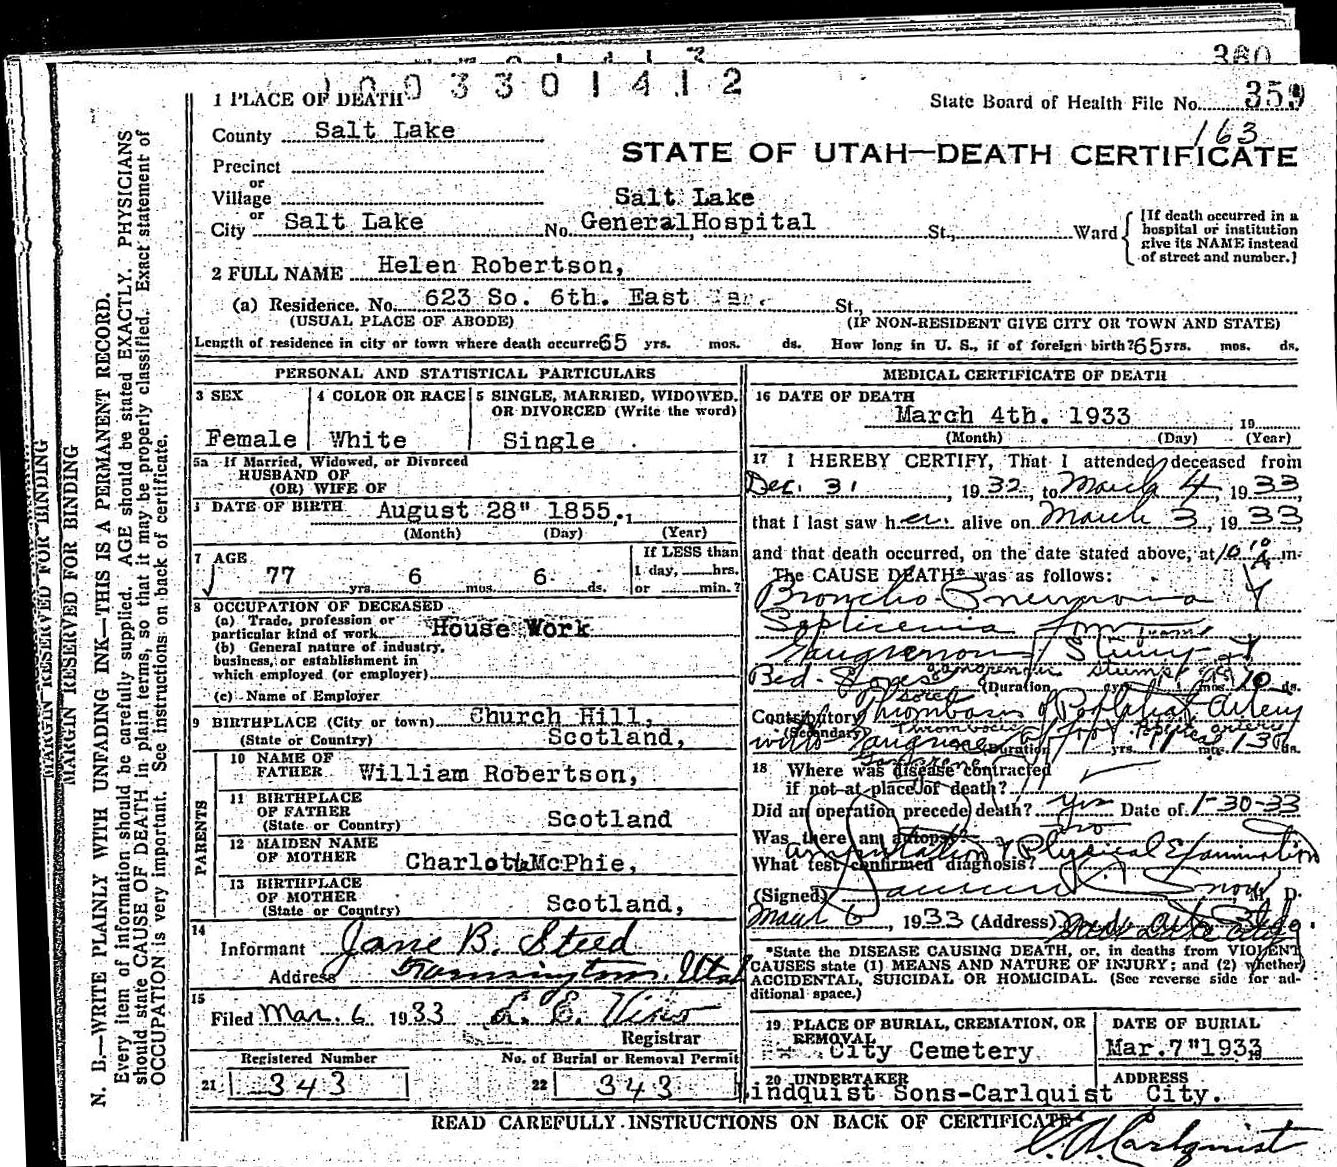 380
1003301412
1 PLACE OF DEATH
State Board of Health File No. 359
163
County Salt Lake
STATE OF UTAH—DEATH CERTIFICATE
Precinct
or
Village
Salt Lake
or
City Salt Lake No. General Hospital St., Ward
[If death occurred in a
hospital or institution
give its NAME instead
of street and number.]
2 FULL NAME Helen Robertson,
(a) Residence. No. 623 So. 6th. East St.,
(USUAL PLACE OF ABODE) (IF NON-RESIDENT GIVE CITY OR TOWN AND STATE)
Length of residence in city or town where death occurre 65 yrs. mos. ds. How long in U. S., if of foreign birth? 65 yrs. mos. ds.
PERSONAL AND STATISTICAL PARTICULARS
3 SEX
4 COLOR OR RACE
5 SINGLE, MARRIED, WIDOWED,
OR DIVORCED (Write the word)
Female White Single
5a If Married, Widowed, or Divorced
HUSBAND OF
(OR) WIFE OF
DATE OF BIRTH August 28" 1855,
(Month) (Day) (Year)
7 AGE
If LESS than
1 day, hrs.
or min.?
77 yrs. 6 mos. 6 ds.
8 OCCUPATION OF DECEASED
(a) Trade, profession or
particular kind of work House Work
(b) General nature of industry,
business, or establishment in
which employed (or employer)
(c) Name of Employer
9 BIRTHPLACE (City or town) Church Hill,
(State or Country) Scotland,
PARENTS
10 NAME OF
FATHER William Robertson,
11 BIRTHPLACE
OF FATHER
(State or Country) Scotland
12 MAIDEN NAME
OF MOTHER Charlott McPhie,
13 BIRTHPLACE
OF MOTHER
(State or Country) Scotland,
14
Informant Jane B. Steed
Address Farmington, Utah
15
Filed Mar. 6 1933 L. E. Viko
Registrar
Registered Number No. of Burial or Removal Permit
21 343 22 343
MEDICAL CERTIFICATE OF DEATH
16 DATE OF DEATH
March 4th. 1933 , 19
(Month) (Day) (Year)
17 I HEREBY CERTIFY, That I attended deceased from
Dec. 31 , 1932, to March 4, 1933,
that I last saw her alive on March 3, 1933
and that death occurred, on the date stated above, at 10 10 A m.
The CAUSE DEATH* was as follows:
Broncho Pneumonia
Septicemia from
Gangrenous Stump &
gangrenous stump
Bed-Sores (Duration yrs. mos. 10 ds.
sores
Contributory Thrombosis of Popliteal artery
(Secondary) Thrombosis artery
with Gangrene of foot (Duration yrs. mos. ds.
Gangrene
18 Where was disease contracted
if not at place of death?
Did an operation precede death? yes Date of 1-30-33
Was there an autopsy? no
amputation & Physical Examination
What test confirmed diagnosis?
(Signed) Snow M. D.
March 6, 1933 (Address)
*State the DISEASE CAUSING DEATH, or, in deaths from VIOLENT
CAUSES state (1) MEANS AND NATURE OF INJURY; and (2) whether
ACCIDENTAL, SUICIDAL OR HOMICIDAL. (See reverse side for ad-
ditional space.)
19 PLACE OF BURIAL, CREMATION, OR
REMOVAL
City Cemetery
DATE OF BURIAL
Mar. 7" 1933
20 UNDERTAKER ADDRESS
Lindquist Sons-Carlquist City.
READ CAREFULLY INSTRUCTIONS ON BACK OF CERTIFICATE
C. A. Carlquist
MARGIN RESERVED FOR BINDING
MARGIN RESERVED FOR BINDING
N. B.—WRITE PLAINLY WITH UNFADING INK—THIS IS A PERMANENT RECORD.
Every item of information should be carefully supplied. AGE should be stated EXACTLY. PHYSICIANS
should state CAUSE OF DEATH in plain terms, so that it may be properly classified. Exact statement of
OCCUPATION is very important. See instructions on back of certificate.